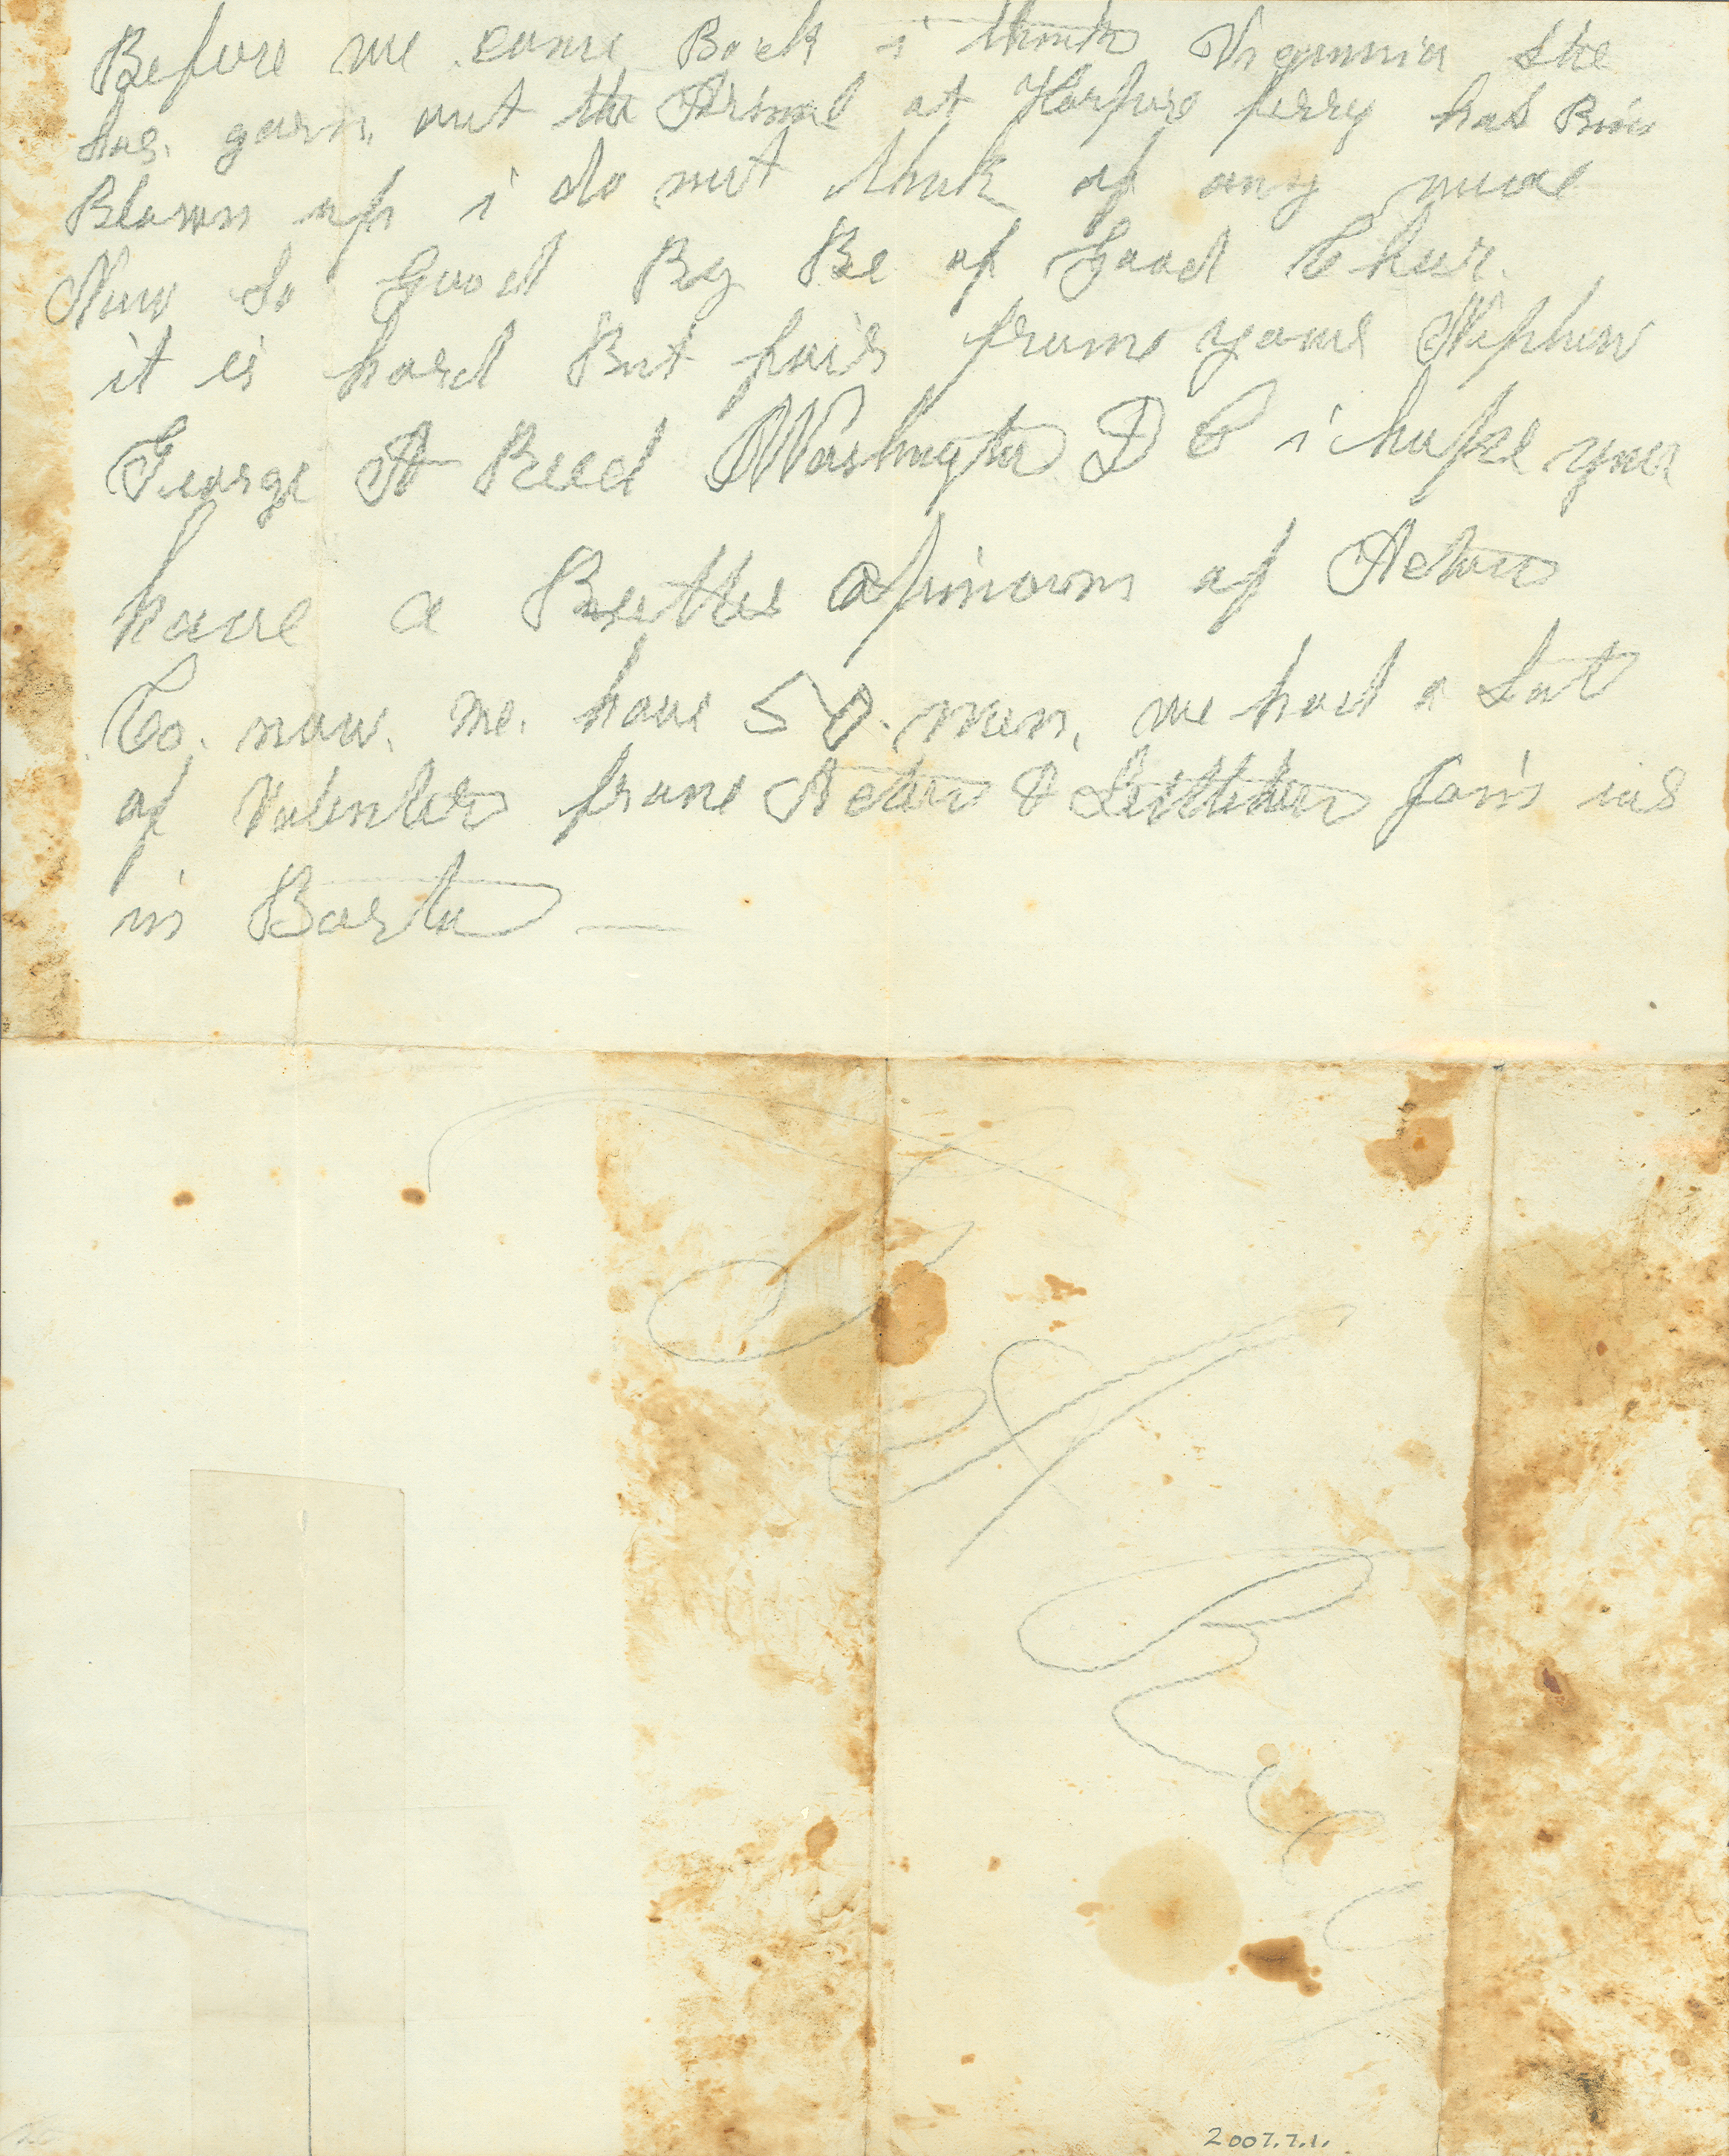 Before we come Back i think Vigunnia She
has. gorn. out the Arsinal at Harpurs ferry has Bin
Blown up i do not think of any more
Now So Good By Be of Good Chear.
it is hard But fair from your Nephew
George A Reed Washington D C i hope you
have a Better opinown of Acton
Co. now. We. have 50. men. we had a Lot
of Volenters from Acton & Littleton Join us
in Boston —
2007.7.1.